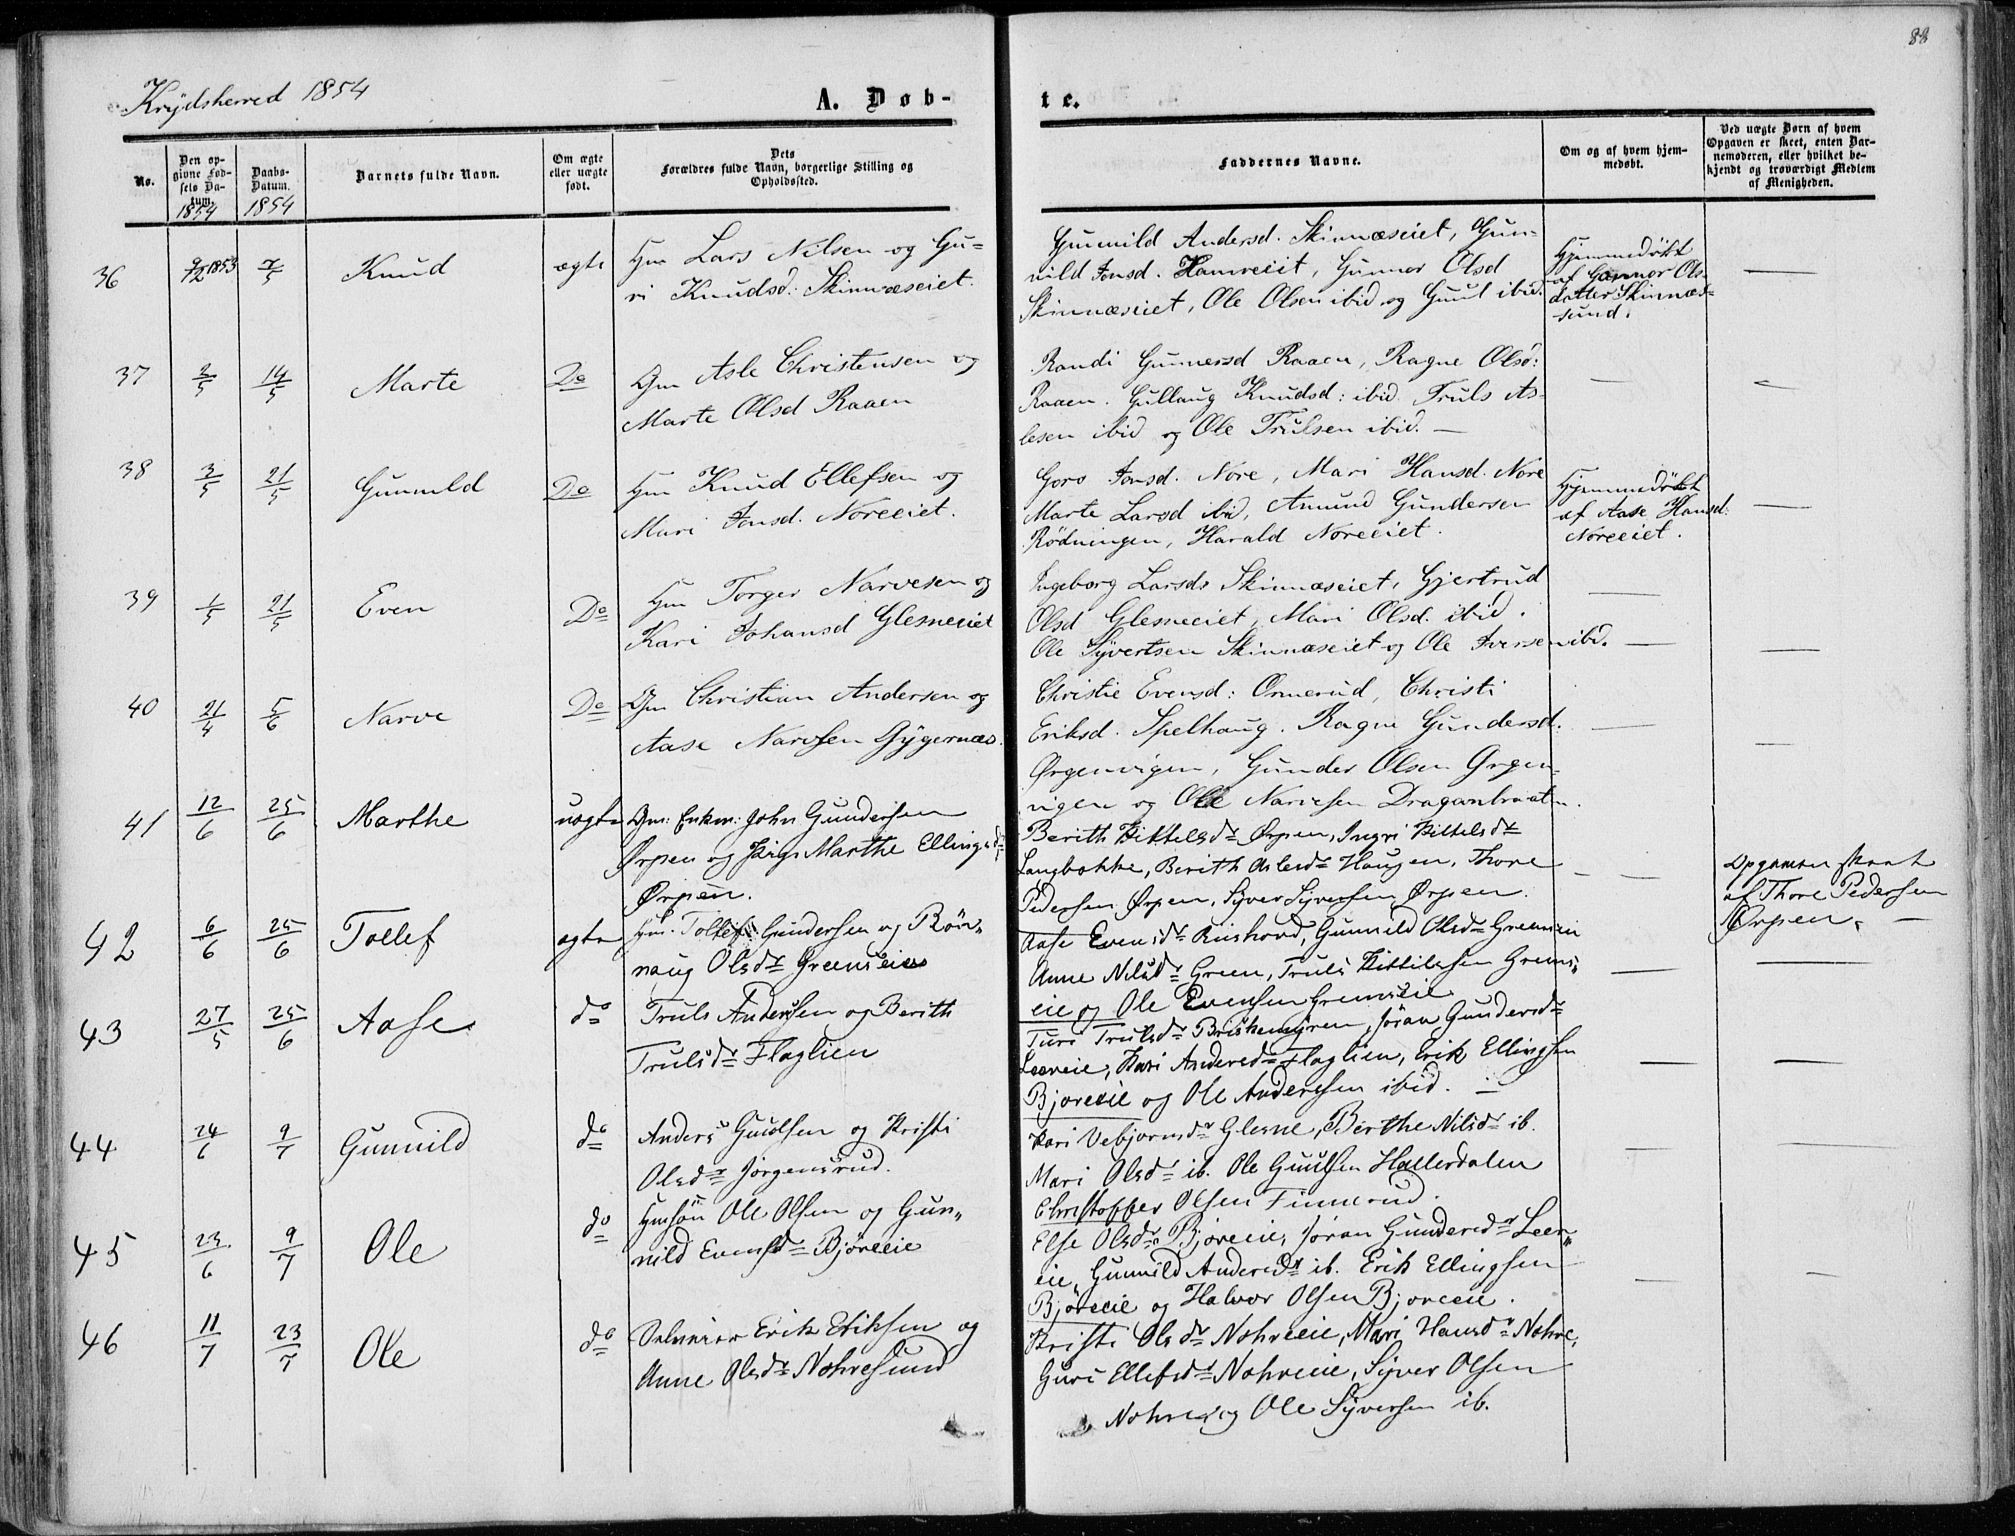 88
Krydsherred 1854
A. Døb-
te.
No.
Den op-
givne Fød-
sels Da-
tum.
1854
Daabs-
Datum.
1854
Barnets fulde Navn.
Om ægte
eller uægte
født.
Dets
Forældres fulde Navn, borgerlige Stilling og
Opholdssted.
Faddernes Navne.
Om og af hvem hjem-
medøbt.
Ved uægte Børn af hvem
Opgaven er skeet, enten Bar-
nemoderen, eller hvilket be-
kjendt og troværdigt Medlem
af Menigheden.
36
9/12 1853
7/5
Knud
ægte
Hm Lars Nilsen og Gu-
ri Knudsd: Skinnæseiet.
Gunnild Andersd. Skinnæseiet, Gun-
nild Jonsd. Hamreeiet, Gunnor Olsd
Skinnæseiet, Ole Olsen ibid og Guul ibid.
Hjemmedøbt
af Gunnor Ols-
datter Skinnæs-
sund.
37
2/5
14/5
Marte
Do
Gm Asle Christensen og
Marte Olsd Raaen
Randi Gunnersd Raaen, Ragne Olsd:
Raaen. Gullaug Knudsd: ibid. Truls As-
lesen ibid og Ole Trulsen ibid. —
38
3/5
21/5
Gunnild
Do
Hm Knud Ellefsen og
Mari Jonsd. Noreeiet.
Goro Jonsd. Nore, Mari Hansd. Nore
Marte Larsd ibid, Amund Gundersen
Rødningen, Harald Noreeiet.
Hjemmedøbt
af Aase Hansd.
Noreeiet.
39
1/5
21/5
Even
Do
Hm Torger Narvesen og
Kari Johansd Glesneeiet
Ingeborg Larsdr Skinnæseiet, Gjertrud
Olsd Glesneeiet, Mari Olsd. ibid.
Ole Syvertsen Skinnæseiet og Ole Iversen ibd.
40
21/4
5/6
Narve
Do
Gm Christian Andersen og
Aase Narvesen Gygernæs.
Christie Evensd: Ormerud, Christi
Eriksd. Spelhaug. Ragne Gundersd.
Ørgenvigen, Gunder Olsen Ørgen-
vigen og Ole Narvesen Draganbraaten.
41
12/6
25/6
Marthe
uægte
Gm: Enkm: John Gundersen
Ørpen og Pige Marthe Ellingsdr
Ørpen.
Berith Kittelsdr Ørpen, Ingri Kittelsdr
Langbakke, Berith Aslesdr Haugen, Thore
Pedersen Ørpen, Syver Syversen Ørpen.
Opgaven skeet
af Thore Pedersen
Ørpen. —
42
6/6
25/6
Tollef
ægte
Hm. Tollef Gundersen og Røn-
naug Olsdr Greenseie
Aase Evensdr Ruishovd, Gunnild Olsdr Greenseie
Anne Nilsdr Green, Truls Kittilsen Grens-
eie og Ole Evensen Grenseie
43
27/5
25/6
Aase
do
Truls Andersen og Berith
Trulsdr Flaglien
Turi Trulsdr Briskemyren, Jøran Gundersdr
Leereie, Kari Andersdr Flaglien, Erik Ellingsen
Bjøreeie og Ole Andersen ibid. —
44
24/6
9/7
Gunnild
do
Anders Guulsen og Kristi
Olsdr Jørgensrud.
Kari Vebjørnsdr Glesne, Berthe Nilsdr ib.
Mari Olsdr ib. Ole Guulsen Hallerdalen
Christoffer Olsen Finnerud.
45
23/6
9/7
Ole
do
Hm Ole Olsen og Gun-
nild Evensdr Bjøreeie
Else Olsdr Bjøreeie, Jøran Gundersdr Leer-
eie, Gunnild Andersdr ib. Erik Ellingsen
Bjøreeie og Halvor Olsen Bjøreeie.
46
11/7
23/7
Ole
do
Erik Eriksen og
Anne Olsdr Nohresund
Kristi Olsdr Nohreeie, Mari Hansdr Nohre,
Guri Ellefsdr Nohreeie, Syver Olsen
Nohre og Ole Syversen ib.